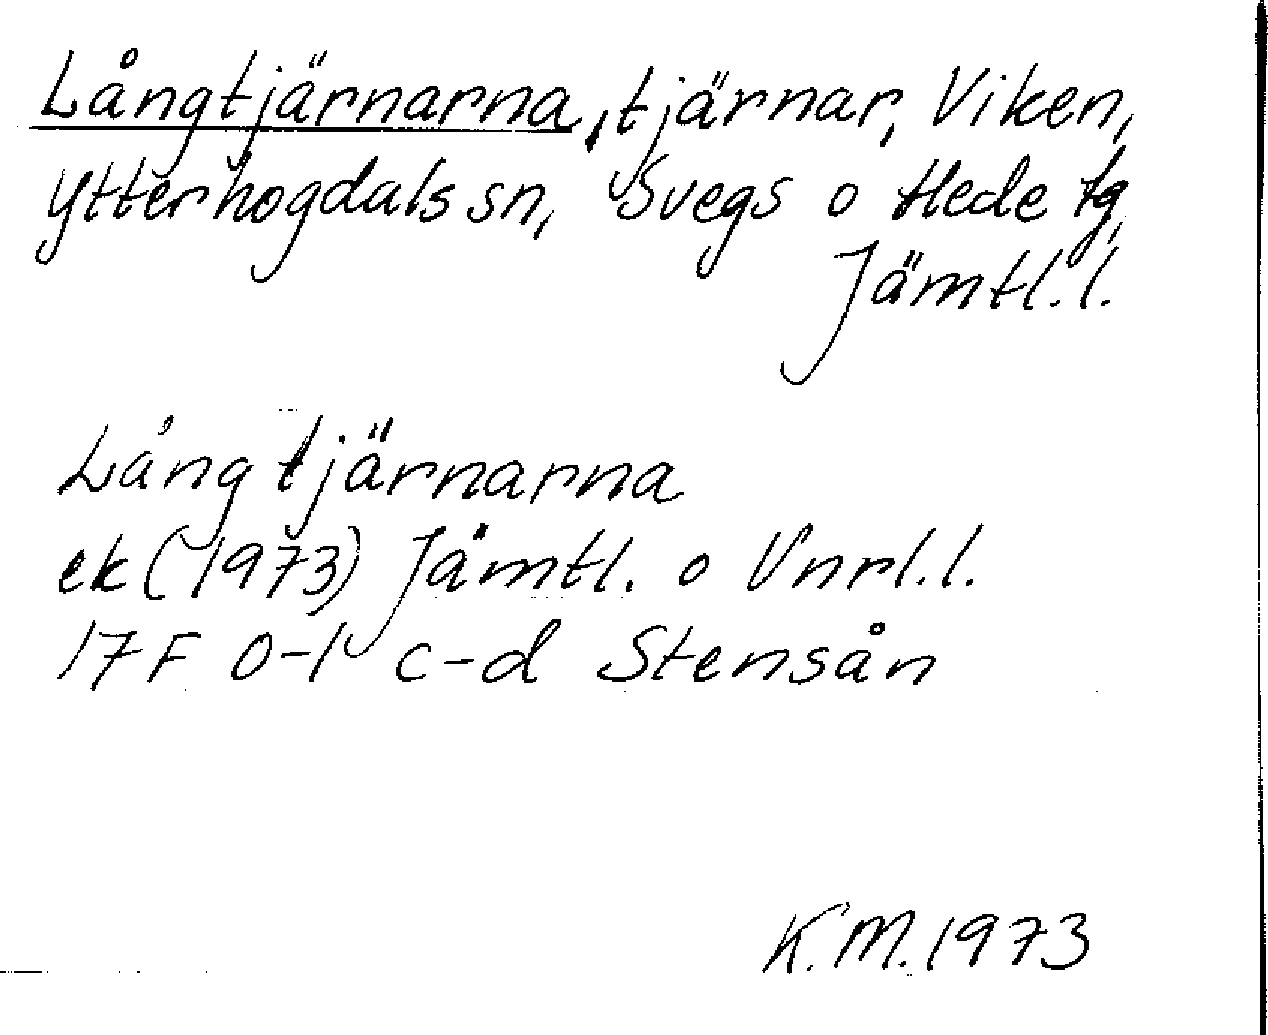 Långtjärnarna, tjärnar, Viken,
Ytterhogdals sn, Svegs o Hede tg,
Jämtl. l.
Långtjärnarna
ek (1973) Jämtl. o Vnrl. l.
17F 0-1 c-d Stensån
K.M. 1973